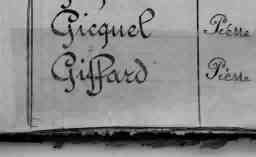 Gicquel Pierre
Giffard Pierre